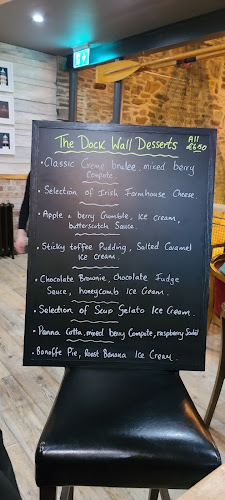 The Dock Wall Desserts All £6.50
• Classic Creme brulee, mixed berry
Compute.
• Selection of Irish Farmhouse Cheese
• Apple & berry Crumble, Ice cream,
butterscotch Sauce.
• Sticky toffee Pudding, Salted Caramel
Ice cream.
• Chocolate Brownie, Chocolate Fudge
Sauce, honeycomb Ice Cream.
• Selection of Scup Gelato Ice Cream.
• Panna Cotta, mixed berry Compute, raspberry
• Banoffe Pie, Roast Banana Ice Cream.